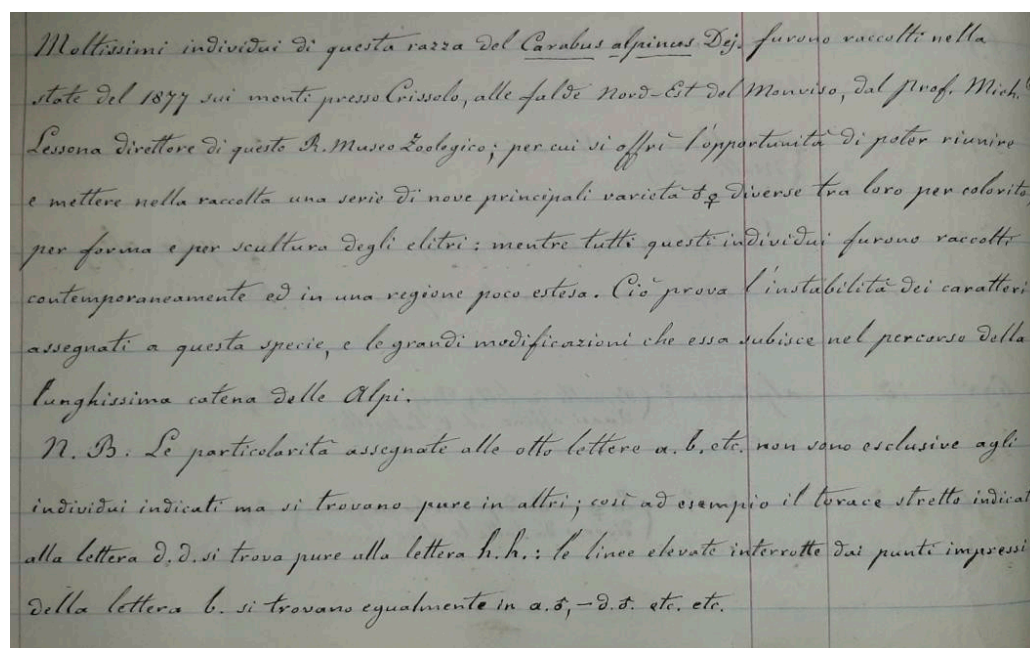 Moltissimi individui di questa razza del Carabus alpinus Dej. furono raccolti nella
state del 1877 sui monti presso Crissolo, alle falde Nord-Est del Monviso, dal Prof. Mich.
Lessona direttore di questo R. Museo Zoologico; per cui si offrì l'opportunità di poter riunire
e mettere nella raccolta una serie di nove principali varietà ♂♀ diverse tra loro per colorito,
per forma e per scultura degli elitri: mentre tutti questi individui furono raccolti
contemporaneamente ed in una regione poco estesa. Ciò prova l'instabilità dei caratteri
assegnati a questa specie, e le grandi modificazioni che essa subisce nel percorso della
lunghissima catena delle Alpi.
N. B. Le particolarità assegnate alle otto lettere a. b. etc. non sono esclusive agli
individui indicati ma si trovano pure in altri; così ad esempio il torace stretto indicat
alla lettera d. d. si trova pure alla lettera h. h.: le linee elevate interrotte dai punti impressi
della lettera b. si trovano egualmente in a. ♂, – d. ♂. etc. etc.